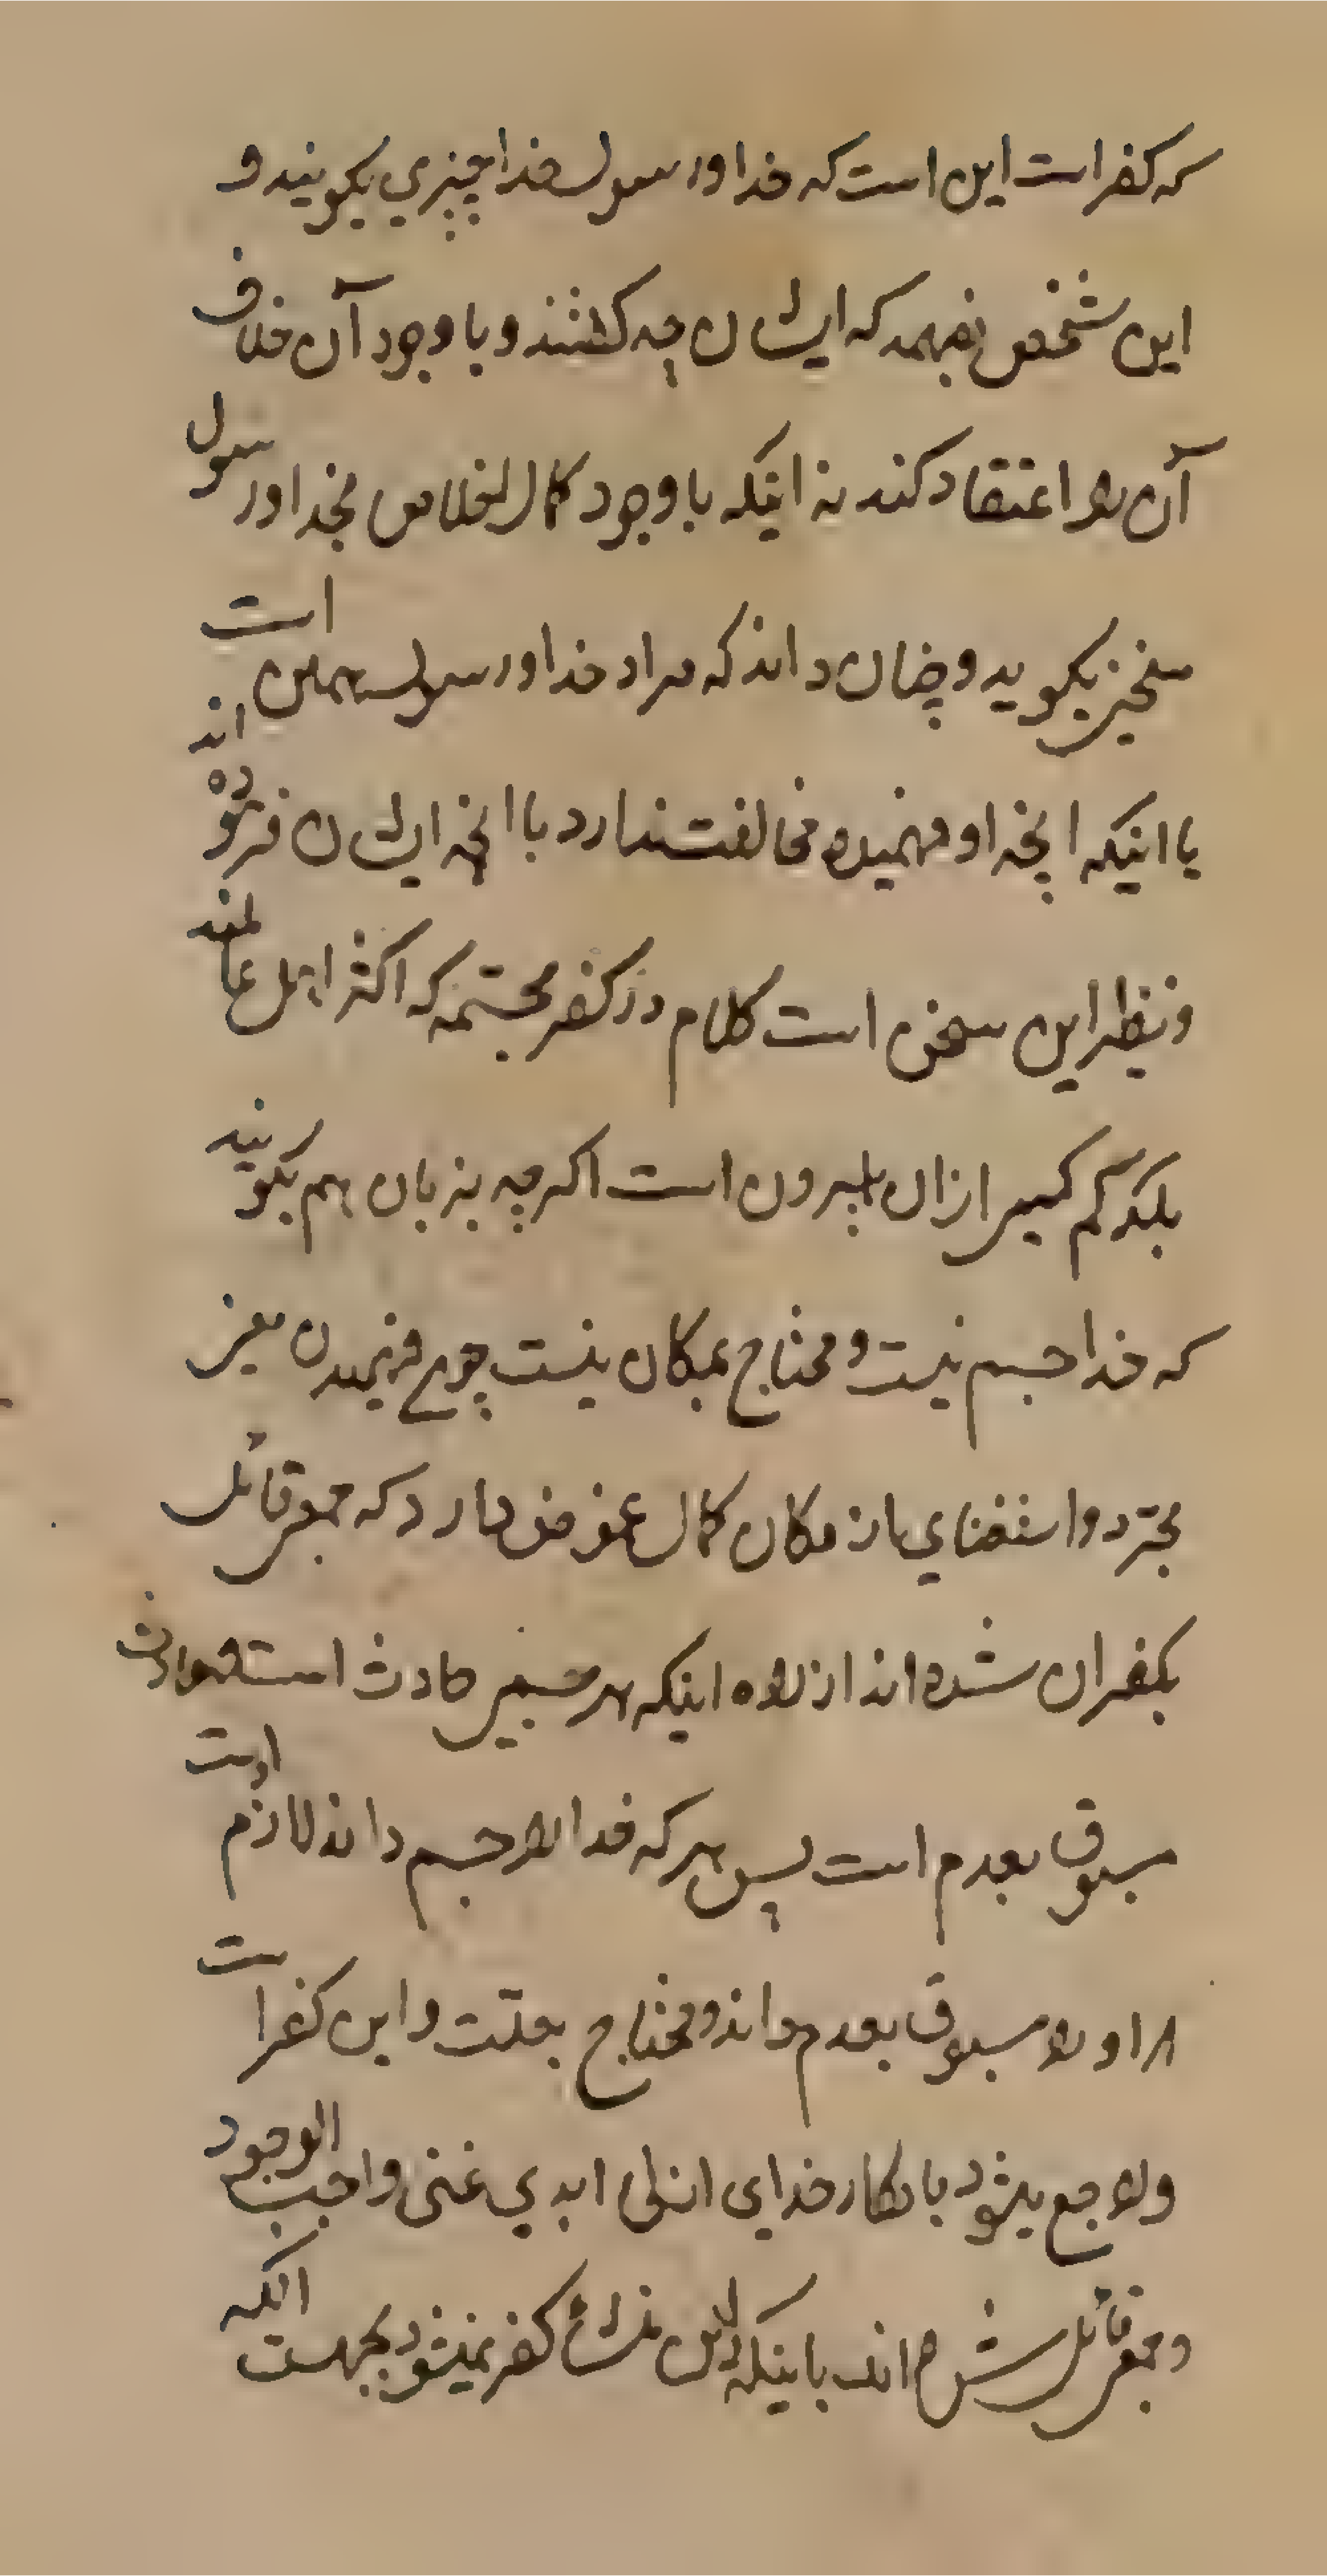 که کفر است این است که خدا و رسول خدا چیزی بگویند و
این شخص بفهمد که ایشان چه گفتند و با وجود آن خلاف
آن را اعتقاد کند نه اینکه با وجود کمال اخلاص بخدا و رسول
سخنی بگوید و چنان داند که مراد خدا و رسول همین است
یا اینکه آنچه او فهمیده مخالفت ندارد با آنچه ایشان فرموده اند
و نظیر این سخن است کلام در کفر مجسمه که اکثر اهل عالمند
بلکه کم کسی از آن بیرون است اگر چه بزبان هم بگویند
که خدا جسم نیست و محتاج بمکان نیست چرا که فهمیدن معنی
تجرد و استغنای از مکان کمال غموض دارد که جمعی قائل
بکفر آن شده اند از راه اینکه هر جسمی حادث است و حادث
مسبوق بعدم است پس هر که خدا را جسم داند لازم است
که او را مسبوق بعدم داند و محتاج بعلت و این کفر است
و راجع میشود بانکار خدای ازلی ابدی غنی واجب الوجود
و جمعی قائل شده اند باینکه این منشأ کفر نمیشود بجهت آنکه